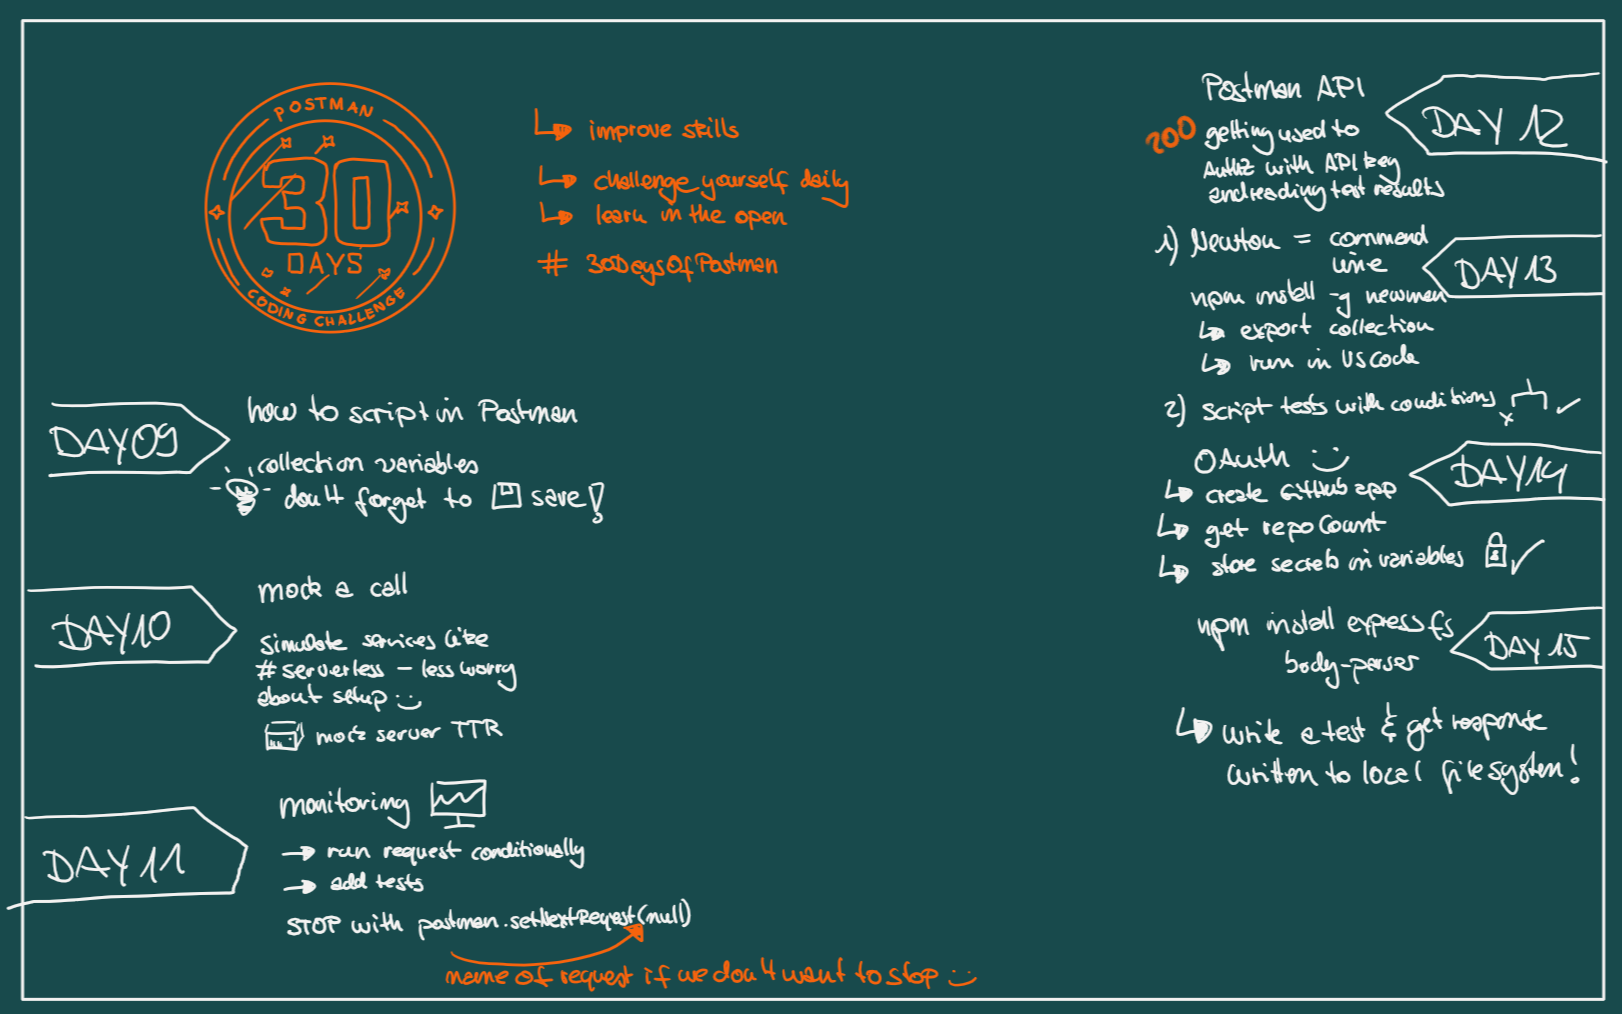 POSTMAN
30
DAYS
CODING CHALLENGE
improve skills
challenge yourself daily
learn in the open
# 30DaysOfPostman
DAY 09
how to script in Postman
collection variables
don't forget to save!
DAY 10
mock a call
simulate services like
#serverless - less worry
about setup :)
mock server TTR
DAY 11
monitoring
→ run request conditionally
→ add tests
STOP with postman.setNextRequest(null)
name of request if we don't want to stop :)
DAY 12
Postman API
200 getting used to
Authz with API key
and reading test results
DAY 13
1) Newton = command
line
npm install -g newman
export collection
run in VSCode
2) script tests with conditions x ✓
DAY 14
OAuth :)
create GitHub app
get repo count
store secrets in variables ✓
DAY 15
npm install express fs
body-parser
write a test & get response
written to local filesystem!